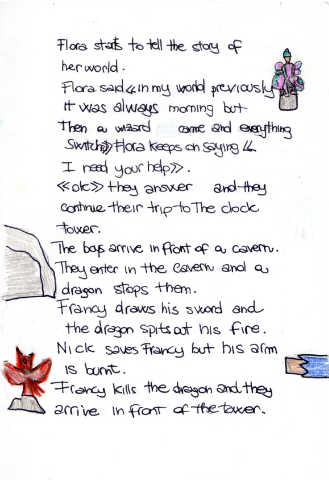 Flora starts to tell the story of
her world.
Flora said « in my world previously
it was always morning but
Then a wizard come and everything
Switch» Flora keeps on saying «
I need your help».
«ok» they answer and they
continue their trip to The clock
tower.
The boys arrive in front of a cavern.
They enter in the cavern and a
dragon stops them.
Francy draws his sword and
the dragon spits out his fire.
Nick saves Francy but his arm
is burnt.
Francy kills the dragon and they
arrive in front of the tower.